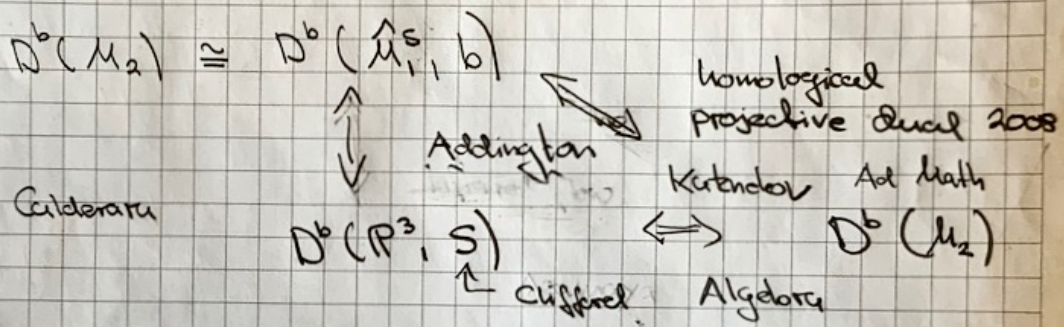 D^b(M_2) ≅ D^b(M̂_1^s, b)
homological
projective dual 2008
Addington
Kutendov Ad Math
Calderaru
D^b(P^3, S) ⟺ D^b(M_2)
Clifford Algebra